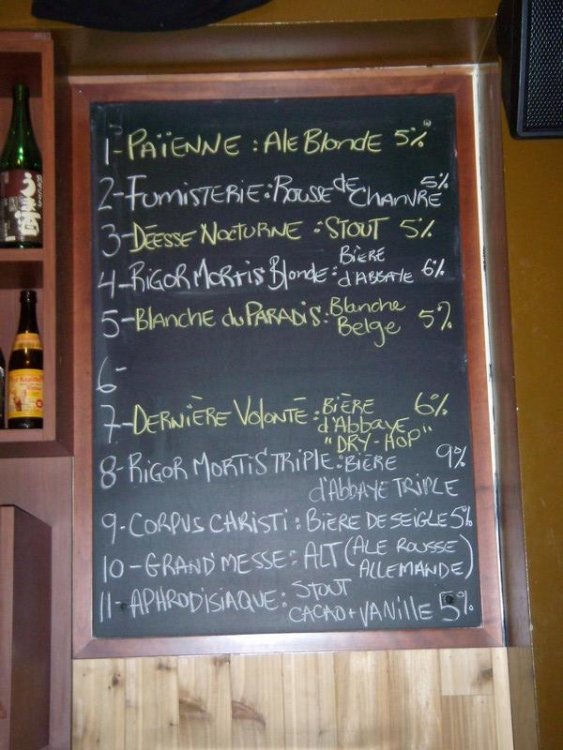 1- PAÏENNE : Ale Blonde 5%
2- FUMISTERIE : ROUSSE de CHANVRE 5%
3- DÉESSE NOCTURNE : STOUT 5%
4- RIGOR MORTIS Blonde : BIÈRE d'ABBAYE 6%
5- BLANCHE du PARADIS : Blanche Belge 5%
6-
7- DERNIÈRE VOLONTÉ : BIÈRE d'Abbaye "DRY-HOP" 6%
8- RIGOR MORTIS TRIPLE : BIÈRE d'ABBAYE TRIPLE 9%
9- CORPUS CHRISTI : BIÈRE DE SEIGLE 5%
10- GRAND'MESSE : ALT (ALE ROUSSE ALLEMANDE)
11- APHRODISIAQUE : STOUT CACAO + VANILLE 5%